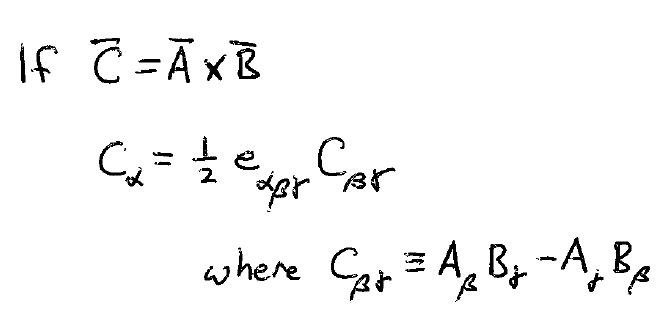 If C̅ = A̅ × B̅
C_α = ½ e_αβγ C_βγ
where C_βγ ≡ A_β B_γ − A_γ B_β